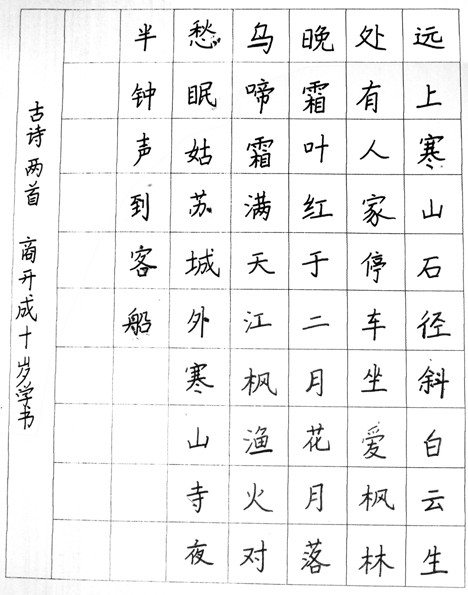 远上寒山石径斜白云生
处有人家停车坐爱枫林
晚霜叶红于二月花月落
乌啼霜满天江枫渔火对
愁眠姑苏城外寒山寺夜
半钟声到客船
古诗两首 商开成十岁学书